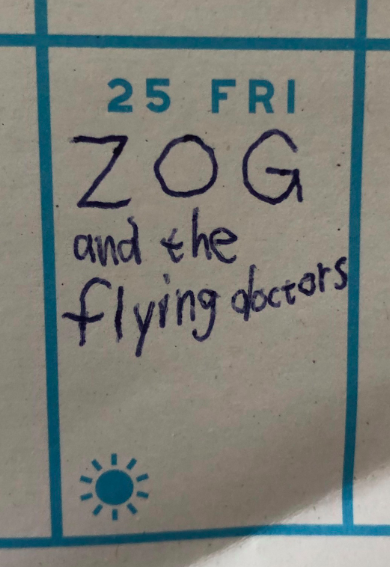 25 FRI
ZOG
and the
flying doctors